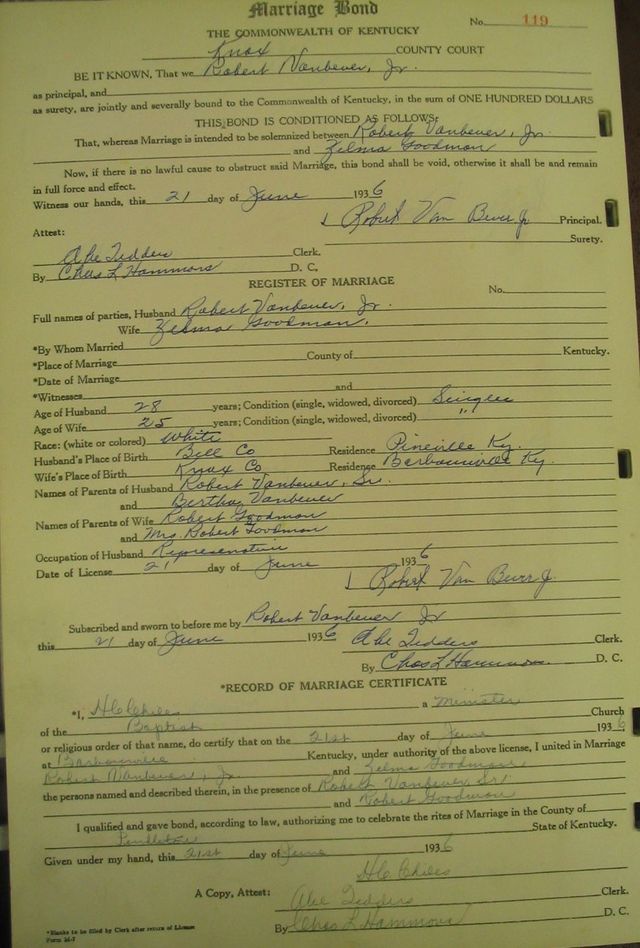 Marriage Bond
No. 119
THE COMMONWEALTH OF KENTUCKY
Knox COUNTY COURT
BE IT KNOWN, That we Robert Vanbever, Jr.
as principal, and
as surety, are jointly and severally bound to the Commonwealth of Kentucky, in the sum of ONE HUNDRED DOLLARS
THIS BOND IS CONDITIONED AS FOLLOWS:
That, whereas Marriage is intended to be solemnized between Robert Vanbever, Jr.
and Zelma Goodman
Now, if there is no lawful cause to obstruct said Marriage, this bond shall be void, otherwise it shall be and remain
in full force and effect.
Witness our hands, this 21 day of June 1936
Robert Van Bever Jr Principal.
Attest: Surety.
Abe Tedders Clerk.
By Chas L Hammons D. C.
REGISTER OF MARRIAGE
No.
Full names of parties, Husband Robert Vanbever, Jr.
Wife Zelma Goodman.
*By Whom Married
*Place of Marriage County of Kentucky.
*Date of Marriage
*Witnesses and
Age of Husband 28 years; Condition (single, widowed, divorced) Single
Age of Wife 25 years; Condition (single, widowed, divorced) "
Race: (white or colored) White
Husband's Place of Birth Bell Co Residence Pineville Ky.
Wife's Place of Birth Knox Co Residence Barbourville Ky.
Names of Parents of Husband Robert Vanbever, Sr.
and Bertha Vanbever
Names of Parents of Wife Robert Goodman
and Mrs. Robert Goodman
Occupation of Husband Representative
Date of License 21 day of June 1936
Robert Van Bever Jr.
Subscribed and sworn to before me by Robert Vanbever Jr
this 21 day of June 1936 Abe Tedders Clerk.
By Chas L Hammons D. C.
*RECORD OF MARRIAGE CERTIFICATE
*I, H C Chiles a Minister
of the Baptist Church
or religious order of that name, do certify that on the 21st day of June 1936
at Barbourville Kentucky, under authority of the above license, I united in Marriage
Robert Vanbever, Jr. and Zelma Goodman
the persons named and described therein, in the presence of Robert Vanbever Sr.
and Robert Goodman
I qualified and gave bond, according to law, authorizing me to celebrate the rites of Marriage in the County of
Pendleton State of Kentucky.
Given under my hand, this 21st day of June 1936
H C Chiles
A Copy, Attest: Abe Tedders Clerk.
By Chas L Hammons D. C.
*Blanks to be filled by Clerk after return of License
Form M-7